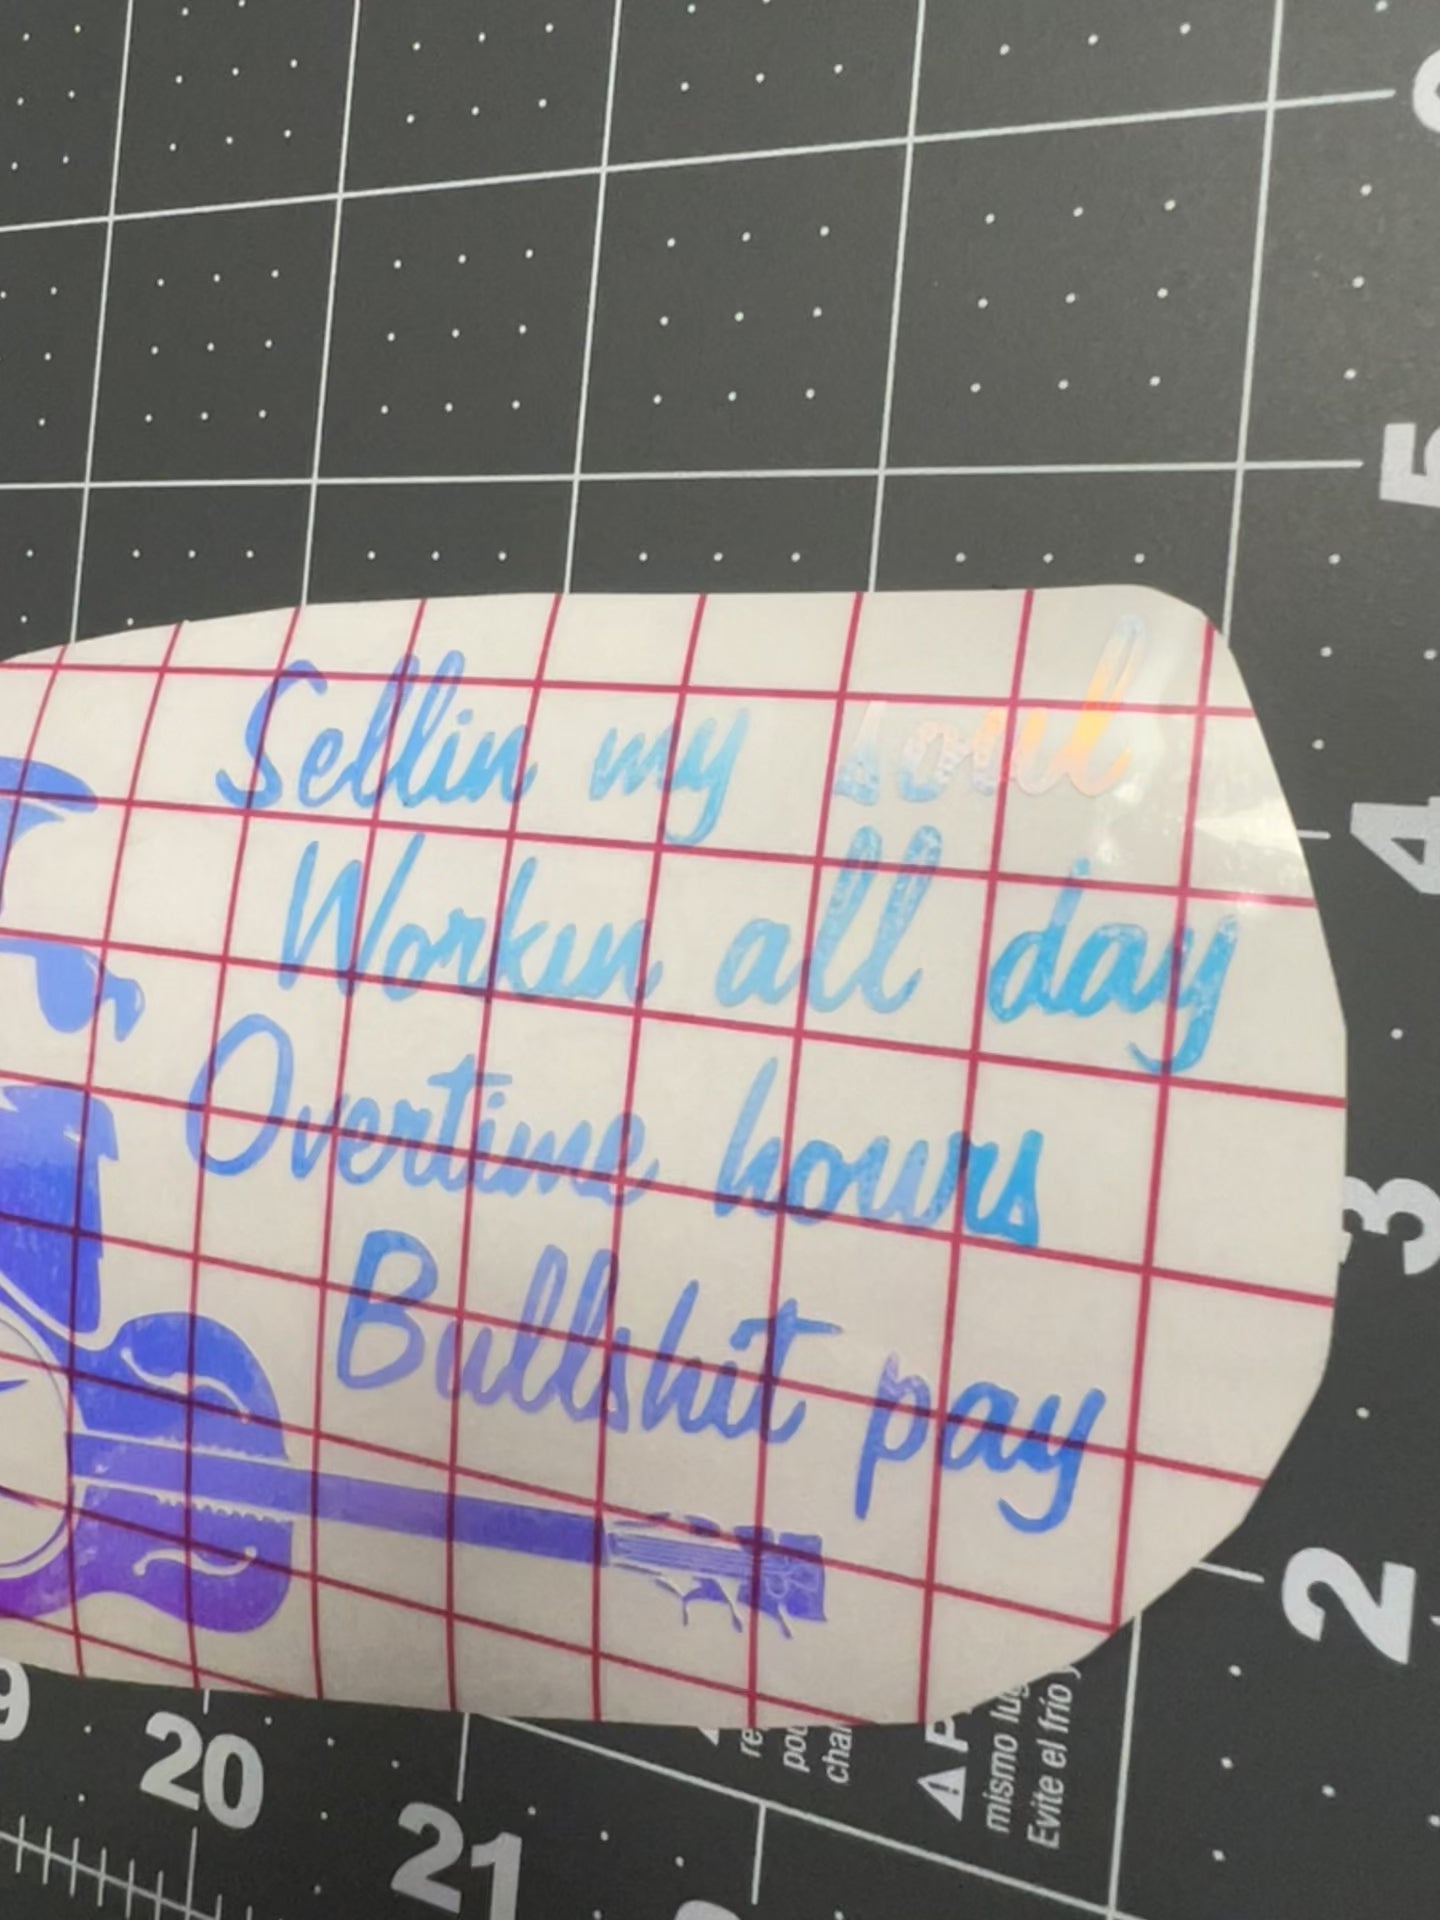 Sellin my soul
Workin all day
Overtime hours
Bullshit pay
5
4
3
2
20
21
mismo
Evite el frío y